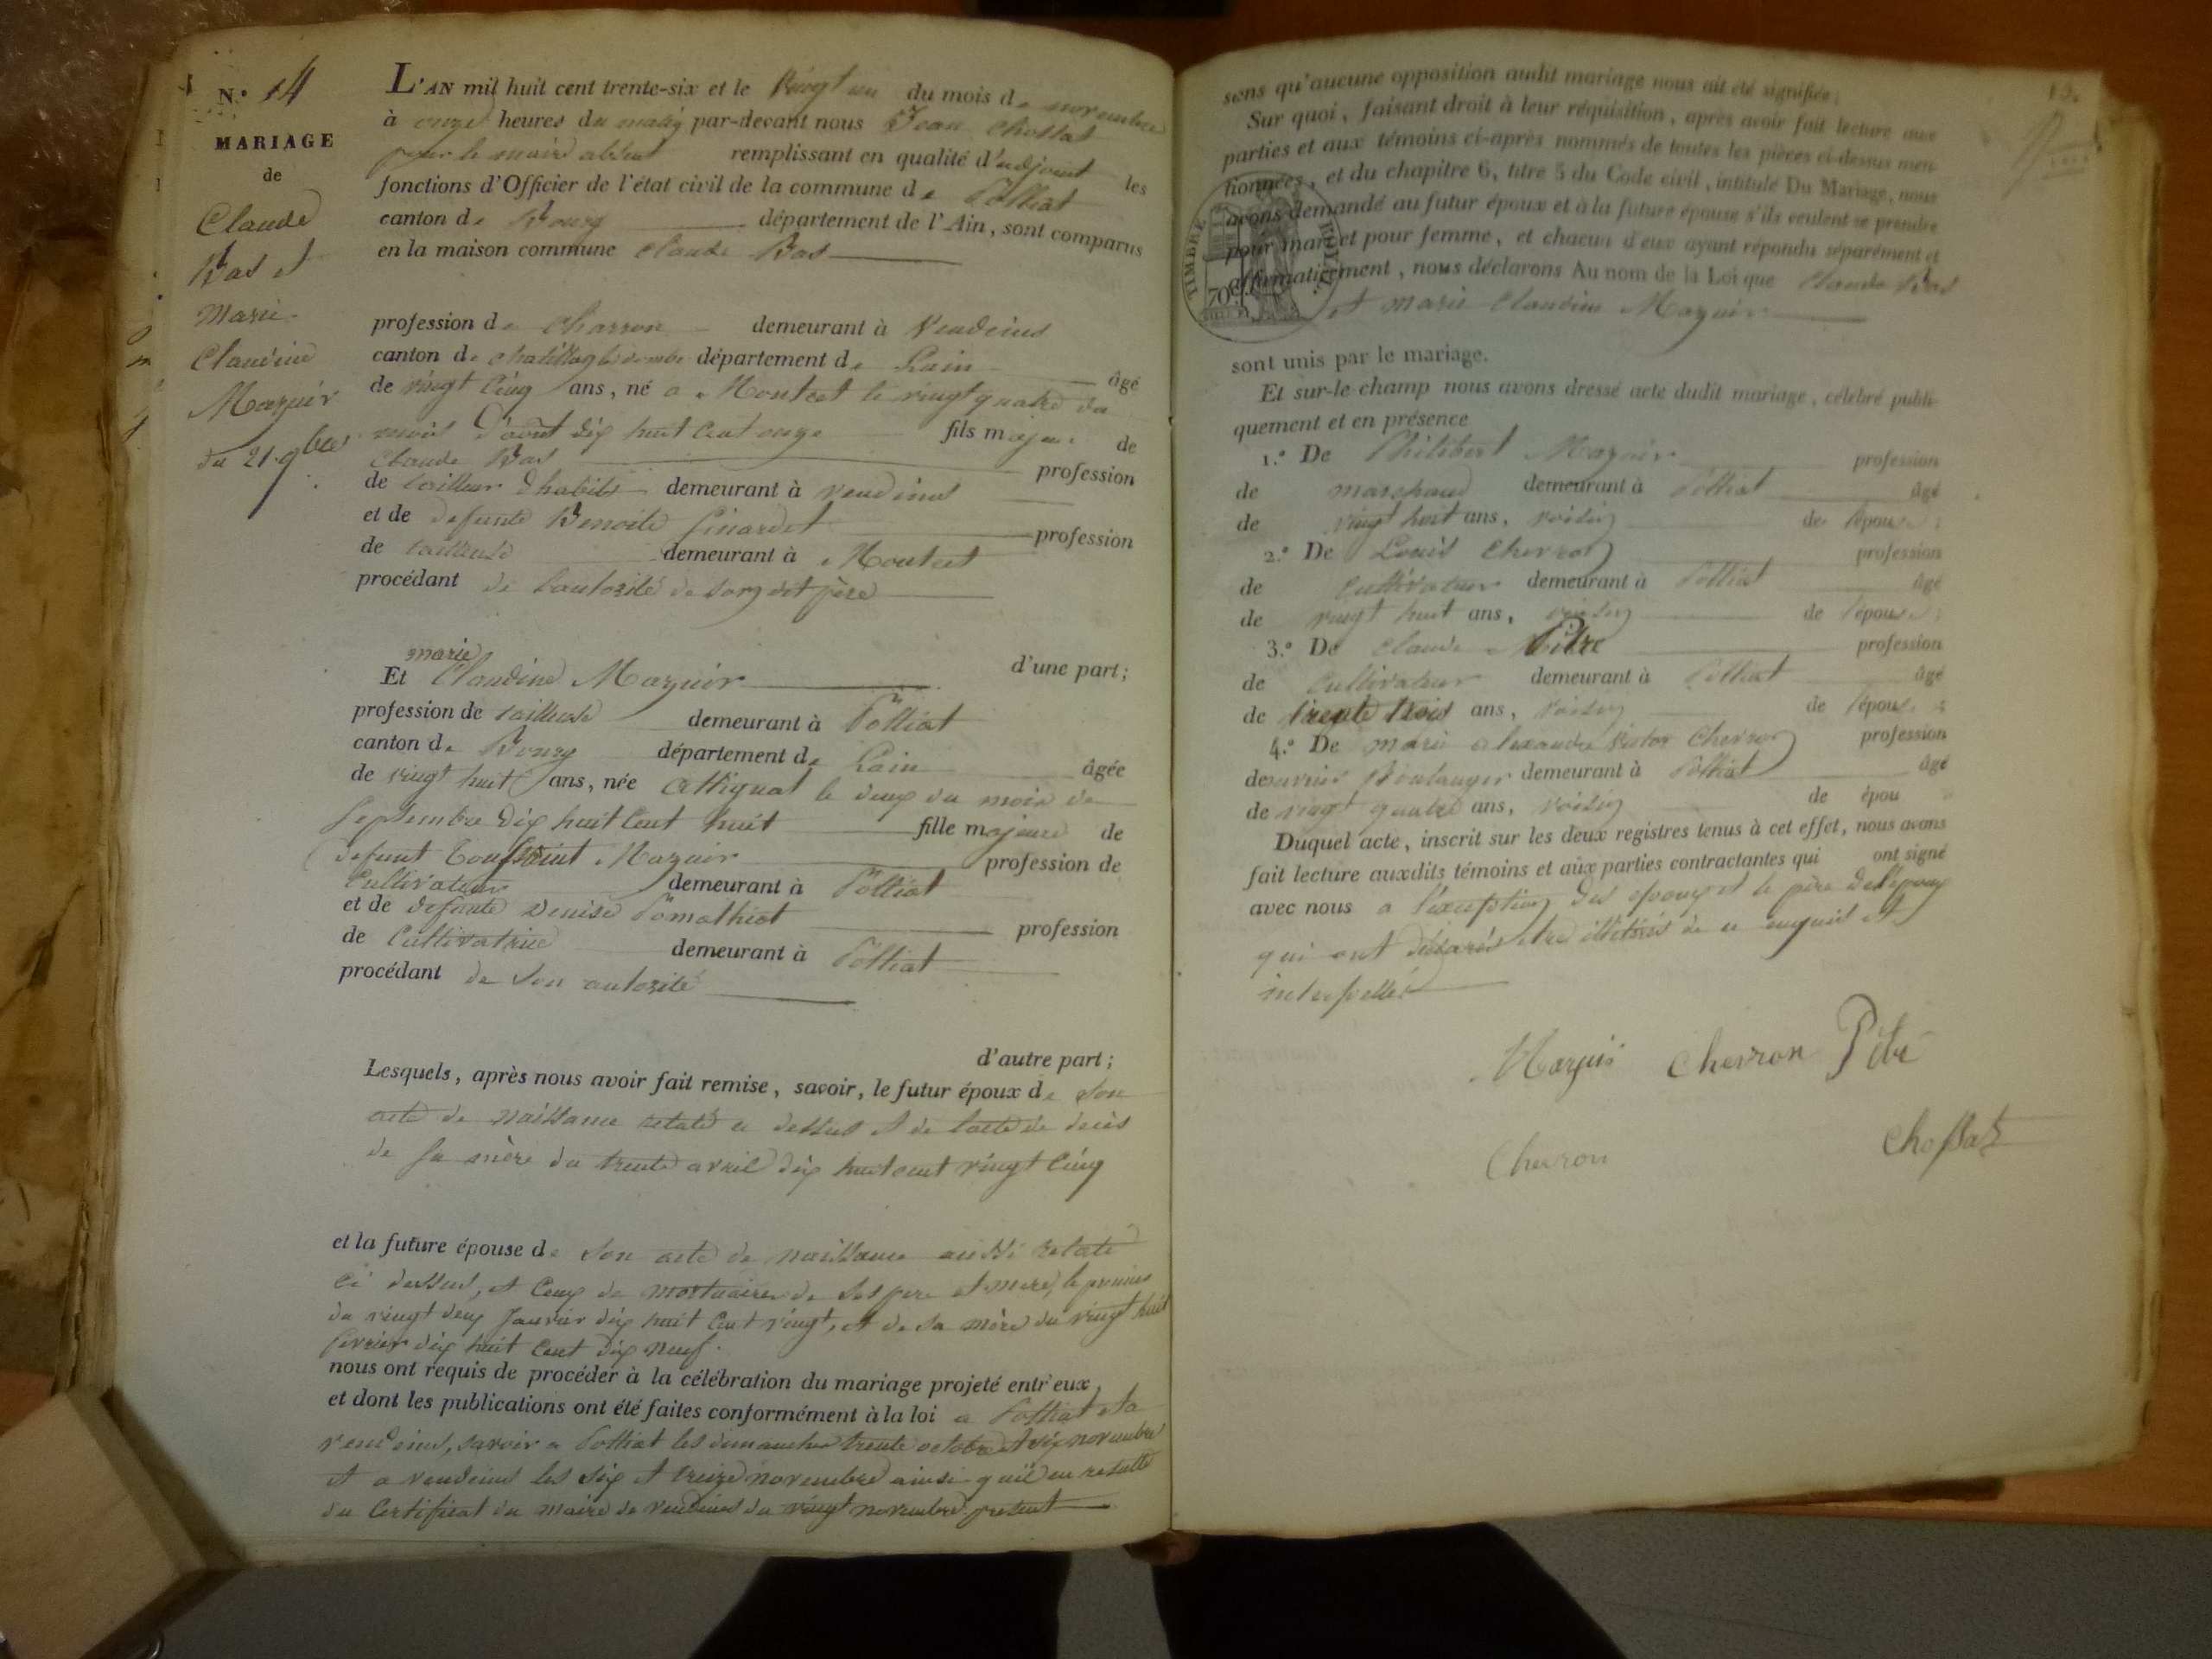 N.° 14
MARIAGE
de
Claude
Bas et
Marie
Claudine
Mazuir
du 21 9bre
L'AN mil huit cent trente-six et le vingt un du mois de novembre
à onze heures du matin par-devant nous Jean Chossat
pour le maire absent remplissant en qualité d'adjoint les
fonctions d'Officier de l'état civil de la commune de Polliat
canton de Bourg département de l'Ain, sont comparus
en la maison commune Claude Bas
profession de charron demeurant à Vendeins
canton de chatillon les dombe département de Lain âgé
de vingt cinq ans, né a Montcet le vingt quatre du
mois d'août dix huit cent onze fils majeur de
Claude Bas profession
de tailleur d'habits demeurant à vendeins
et de defunte Benoite profession
de tailleuse demeurant à Montcet
procédant de l'autorité de son dit père
d'une part;
marie
Et Claudine Mazuir
profession de tailleuse demeurant à Polliat
canton de Bourg département de Lain âgée
de vingt huit ans, née a Attignat le deux du mois de
Septembre dix huit cent huit fille majeure de
defunt Toussaint Mazuir profession de
Cultivateur demeurant à Polliat
et de defunte Denise Pomathiot profession
de Cultivatrice demeurant à Polliat
procédant de son autorité
d'autre part;
Lesquels, après nous avoir fait remise, savoir, le futur époux de son
acte de naissance relaté ci dessus et de l'acte de décès
de sa mère du trente avril dix huit cent vingt cinq
et la future épouse de son acte de naissance aussi relaté
ci dessus, et ceux de mortuaires de ses pere et mere, le premier
du vingt deux Janvier dix huit cent vingt, et de sa mère du vingt huit
fevrier dix huit cent dix neuf.
nous ont requis de procéder à la célébration du mariage projeté entr'eux,
et dont les publications ont été faites conformément à la loi a Polliat et a
vendeins, savoir a Polliat les dimanches trente octobre et six novembre
et a vendeins les six et treize novembre ainsi qu'il en resulte
du Certificat du maire de vendeins du vingt novembre present
sans qu'aucune opposition audit mariage nous ait été signifiée;
Sur quoi, faisant droit à leur réquisition, après avoir fait lecture aux
parties et aux témoins ci-après nommés de toutes les pièces ci-dessus men-
tionnées, et du chapitre 6, titre 5 du Code civil, intitulé Du Mariage, nous
avons demandé au futur époux et à la future épouse s'ils veulent se prendre
pour mari et pour femme, et chacun d'eux ayant répondu séparément et
affirmativement, nous déclarons Au nom de la Loi que Claude Bas
et marie Claudine Mazuir
TIMBRE ROYAL
70
sont unis par le mariage.
Et sur-le-champ nous avons dressé acte dudit mariage, célébré publi-
quement et en présence
1.° De Philibert Mazuir profession
de marchand demeurant à Polliat âgé
de vingt huit ans, voisin de l'épouse;
2.° De Louis Chevron profession
de Cultivateur demeurant à Polliat âgé
de vingt huit ans, voisin de l'épouse;
3.° De Claude Pitre profession
de Cultivateur demeurant à Polliat âgé
de trente trois ans, voisin de l'épouse;
4.° De marie alexandre victor Chevron profession
de ouvrier Boulanger demeurant à Polliat âgé
de vingt quatre ans, voisin de épou
Duquel acte, inscrit sur les deux registres tenus à cet effet, nous avons
fait lecture auxdits témoins et aux parties contractantes qui ont signé
avec nous a l'exception des epoux et le père de l'epoux
qui ont déclarés etre illétirés de ce enquis et
interpellés
Mazuir Chevron Pitre
Chevron Chossat